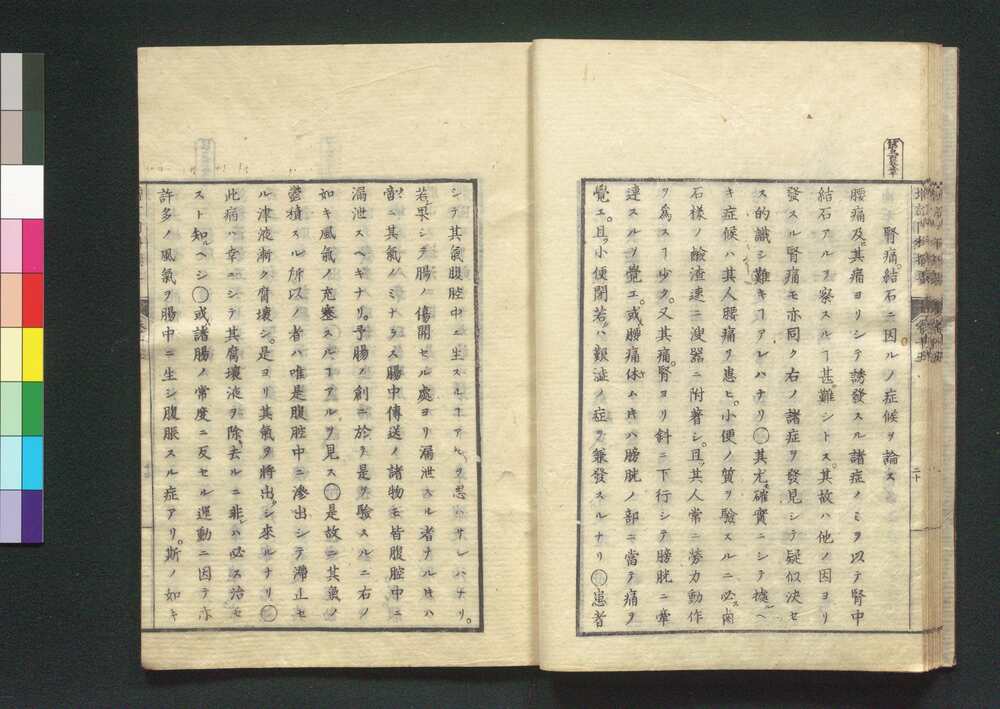 腎痛。結石ニ因ルノ症候ヲ論ス
腰痛及。其痛ヨリシテ誘發スル諸症ノミヲ以テ腎中
結石アルヲ察スルヿ甚。難シトス。其故ハ他ノ因ヨリ
發スル腎痛モ亦同ク右ノ諸症ヲ發見シテ疑似決セ
ス的識シ難キヿアレハナリ○其尤。確實ニシテ據ルヘ
キ症候ハ其人腰痛ヲ患ヒ。小便ノ質ヲ驗スルニ必ス
石樣ノ鹼渣速ニ溲器ニ附著シ。且。其人常ニ勞力動作
ヲ爲スヿ少ク。又其痛。腎ヨリ斜ニ下行シテ膀胱ニ牽
連スルヲ覺エ。或。腰痛休ム片ハ膀胱ノ部ニ當テ痛ヲ
覺エ。且。小便閉若。ハ艱澁ノ症ヲ。兼發スルナリ○患者
二十
シテ其氣腹腔中ニ生スルヿアルヲ思ハサレハナリ。
若。果シテ腸ノ傷開セル處ヨリ漏泄スル者ナル片ハ
啻ニ其氣ノミナラス腸中傳送ノ諸物モ皆腹腔中ニ
漏泄スヘキナリ。予腸ノ創ニ於テ是ヲ驗スルニ右ノ
如キ風氣ノ充塞スルヿアルヲ見ス○是故ニ其氣ノ
鬱積スル所以ノ者ハ唯是腹腔中ニ滲出シテ滯止セ
ル津液漸ク腐壞シ。是ヨリ其氣ヲ將出シ來ルナリ○
此痛ハ幸ニシテ其腐壞液ヲ除。去ルニ非レハ必ス治セ
スト知ルヘシ○或。諸腸ノ常度ニ反セル運動ニ因テ亦
許多ノ風氣ヲ腸中ニ生シ腹脹スル症アリ。斯ノ如キ